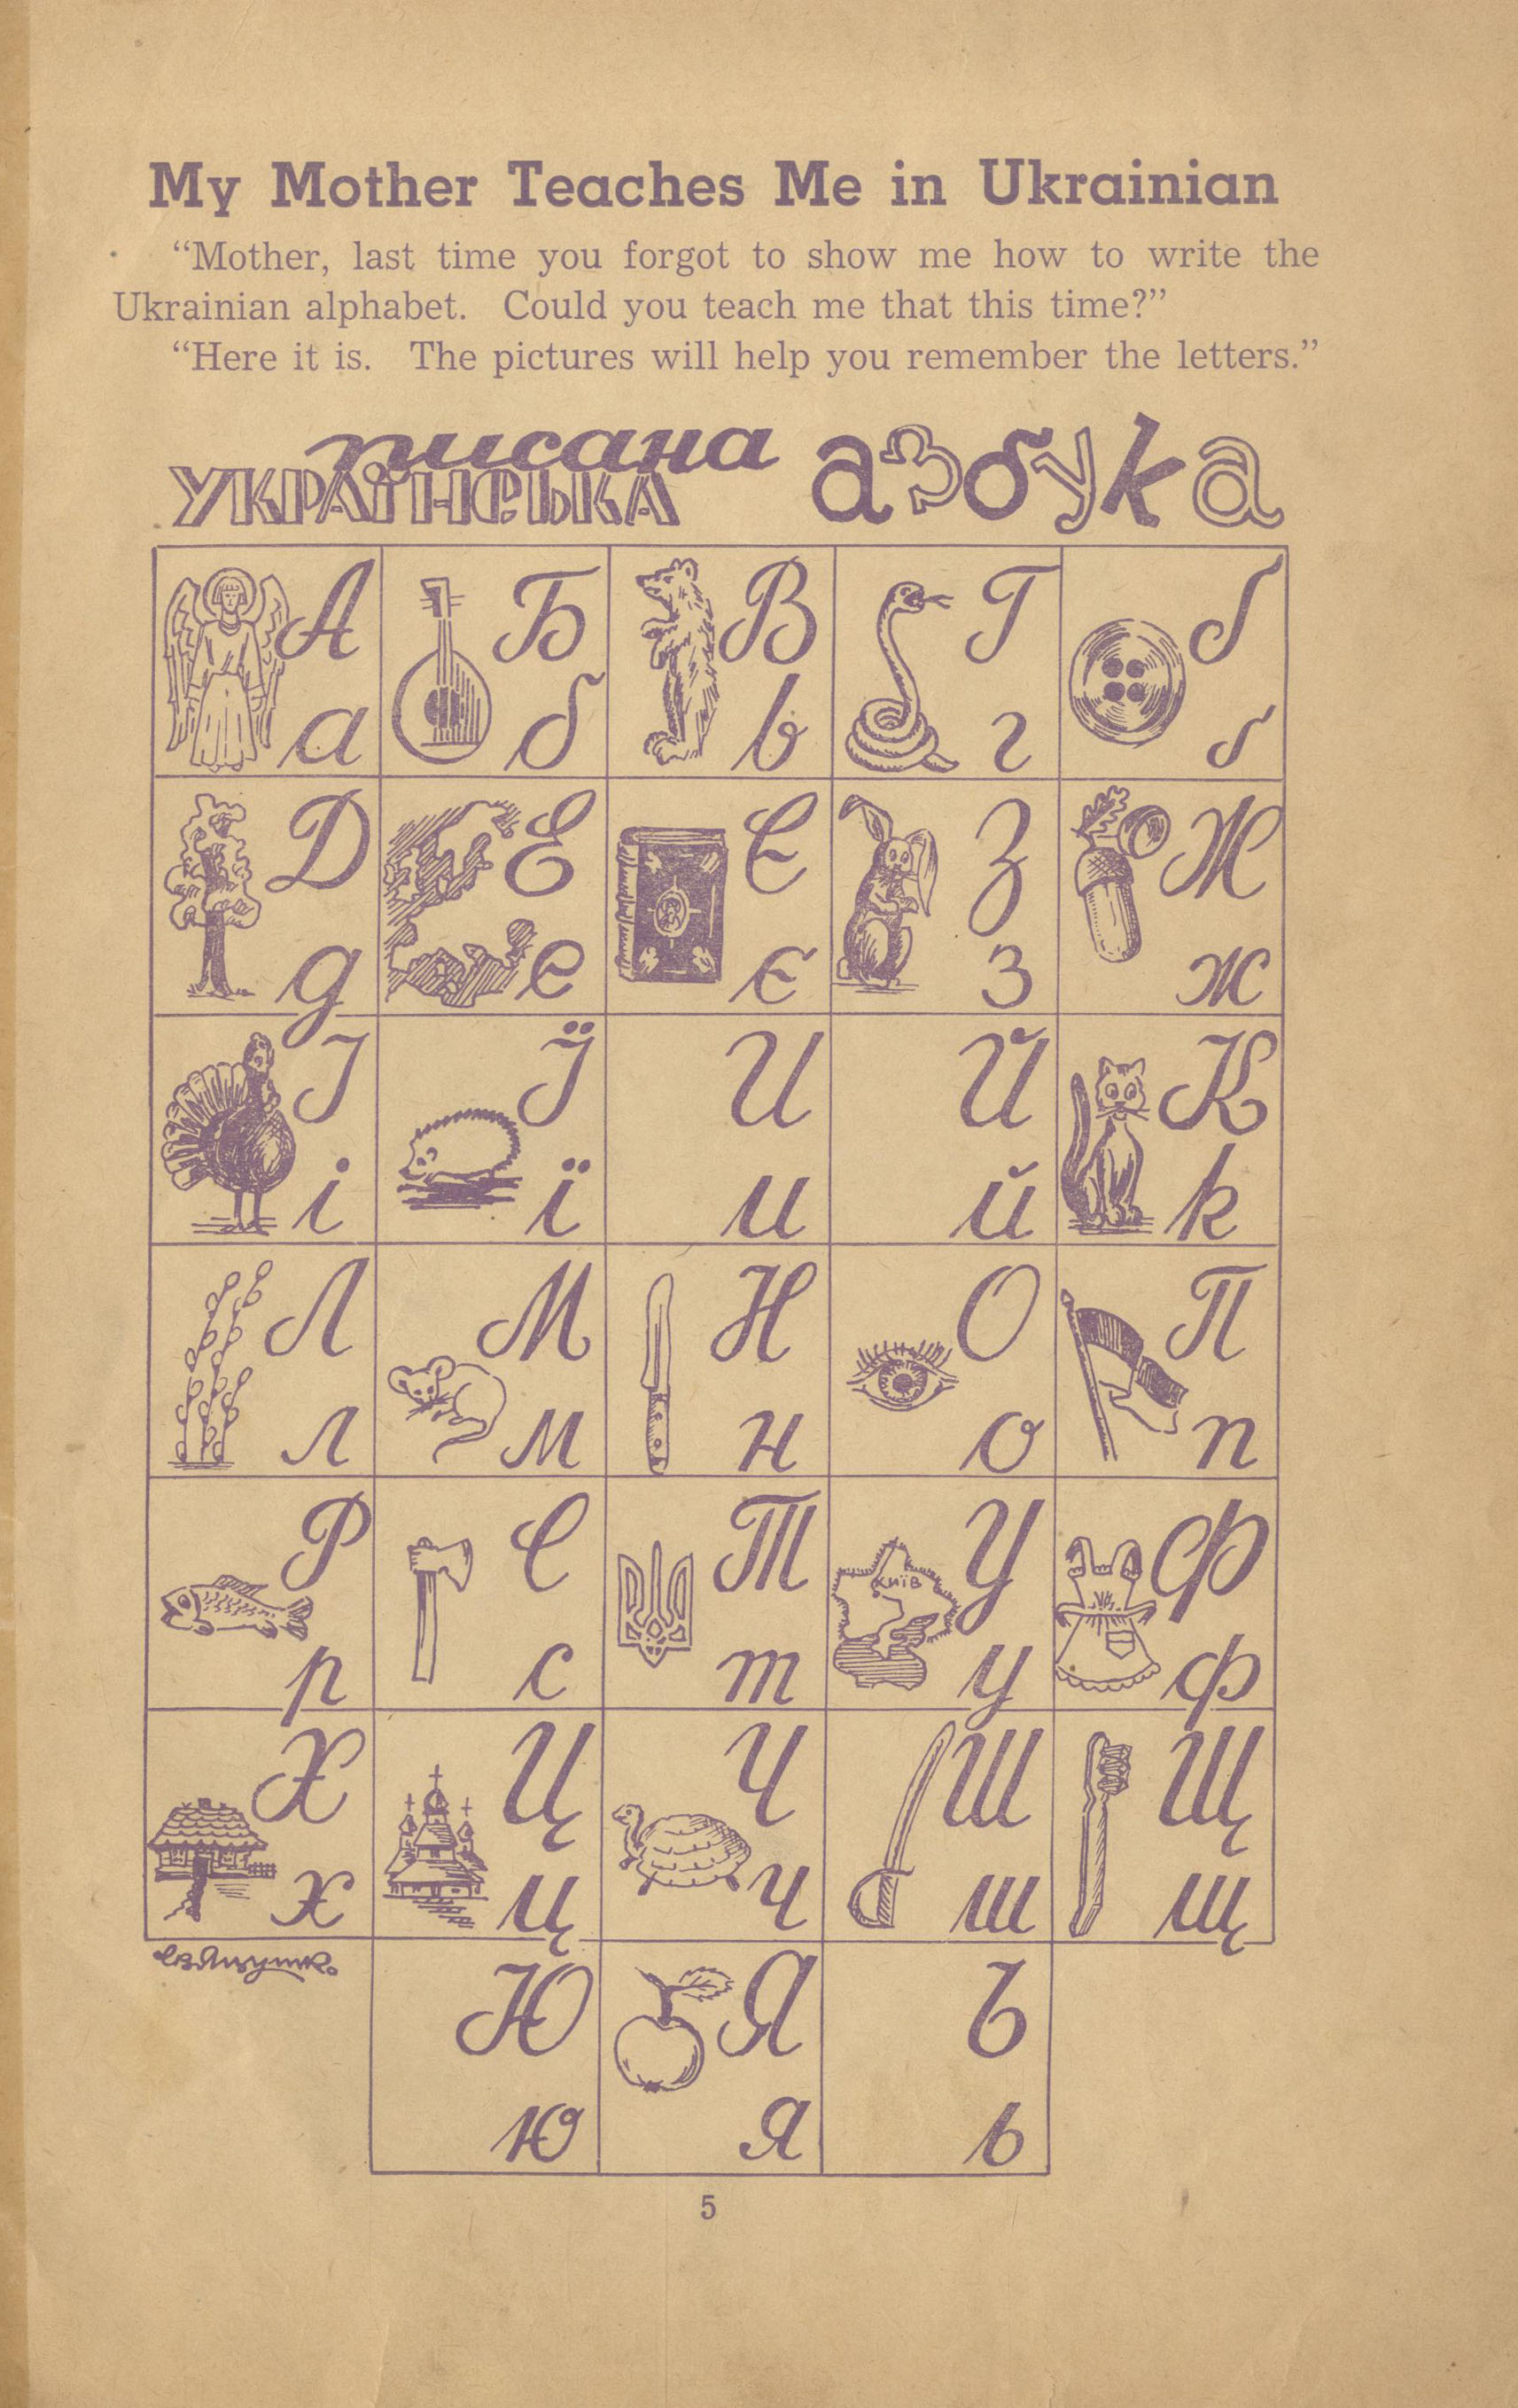 My Mother Teaches Me in Ukrainian
“Mother, last time you forgot to show me how to write the
Ukrainian alphabet. Could you teach me that this time?”
“Here it is. The pictures will help you remember the letters.”
писана
УКРАЇНСЬКА азбука
А Б В Г Ґ
а б в г ґ
Д Е Є З Ж
д е є з ж
І Ї И Й К
і ї и й к
Л М Н О П
л м н о п
Р С Т У Ф
КИЇВ
р с т у ф
Х Ц Ч Ш Щ
х ц ч ш щ
Ю Я Ь
ю я ь
5